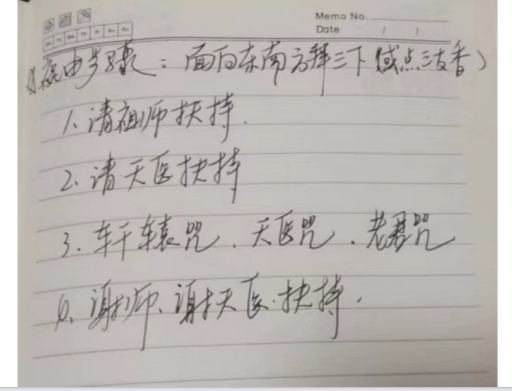 Memo No.
Date / /
祝由步骤：面向东南方拜三下（或点三支香）
1、请祖师扶持.
2、请天医扶持
3、轩辕咒、天医咒、老君咒
4、谢师、谢天医.扶持.